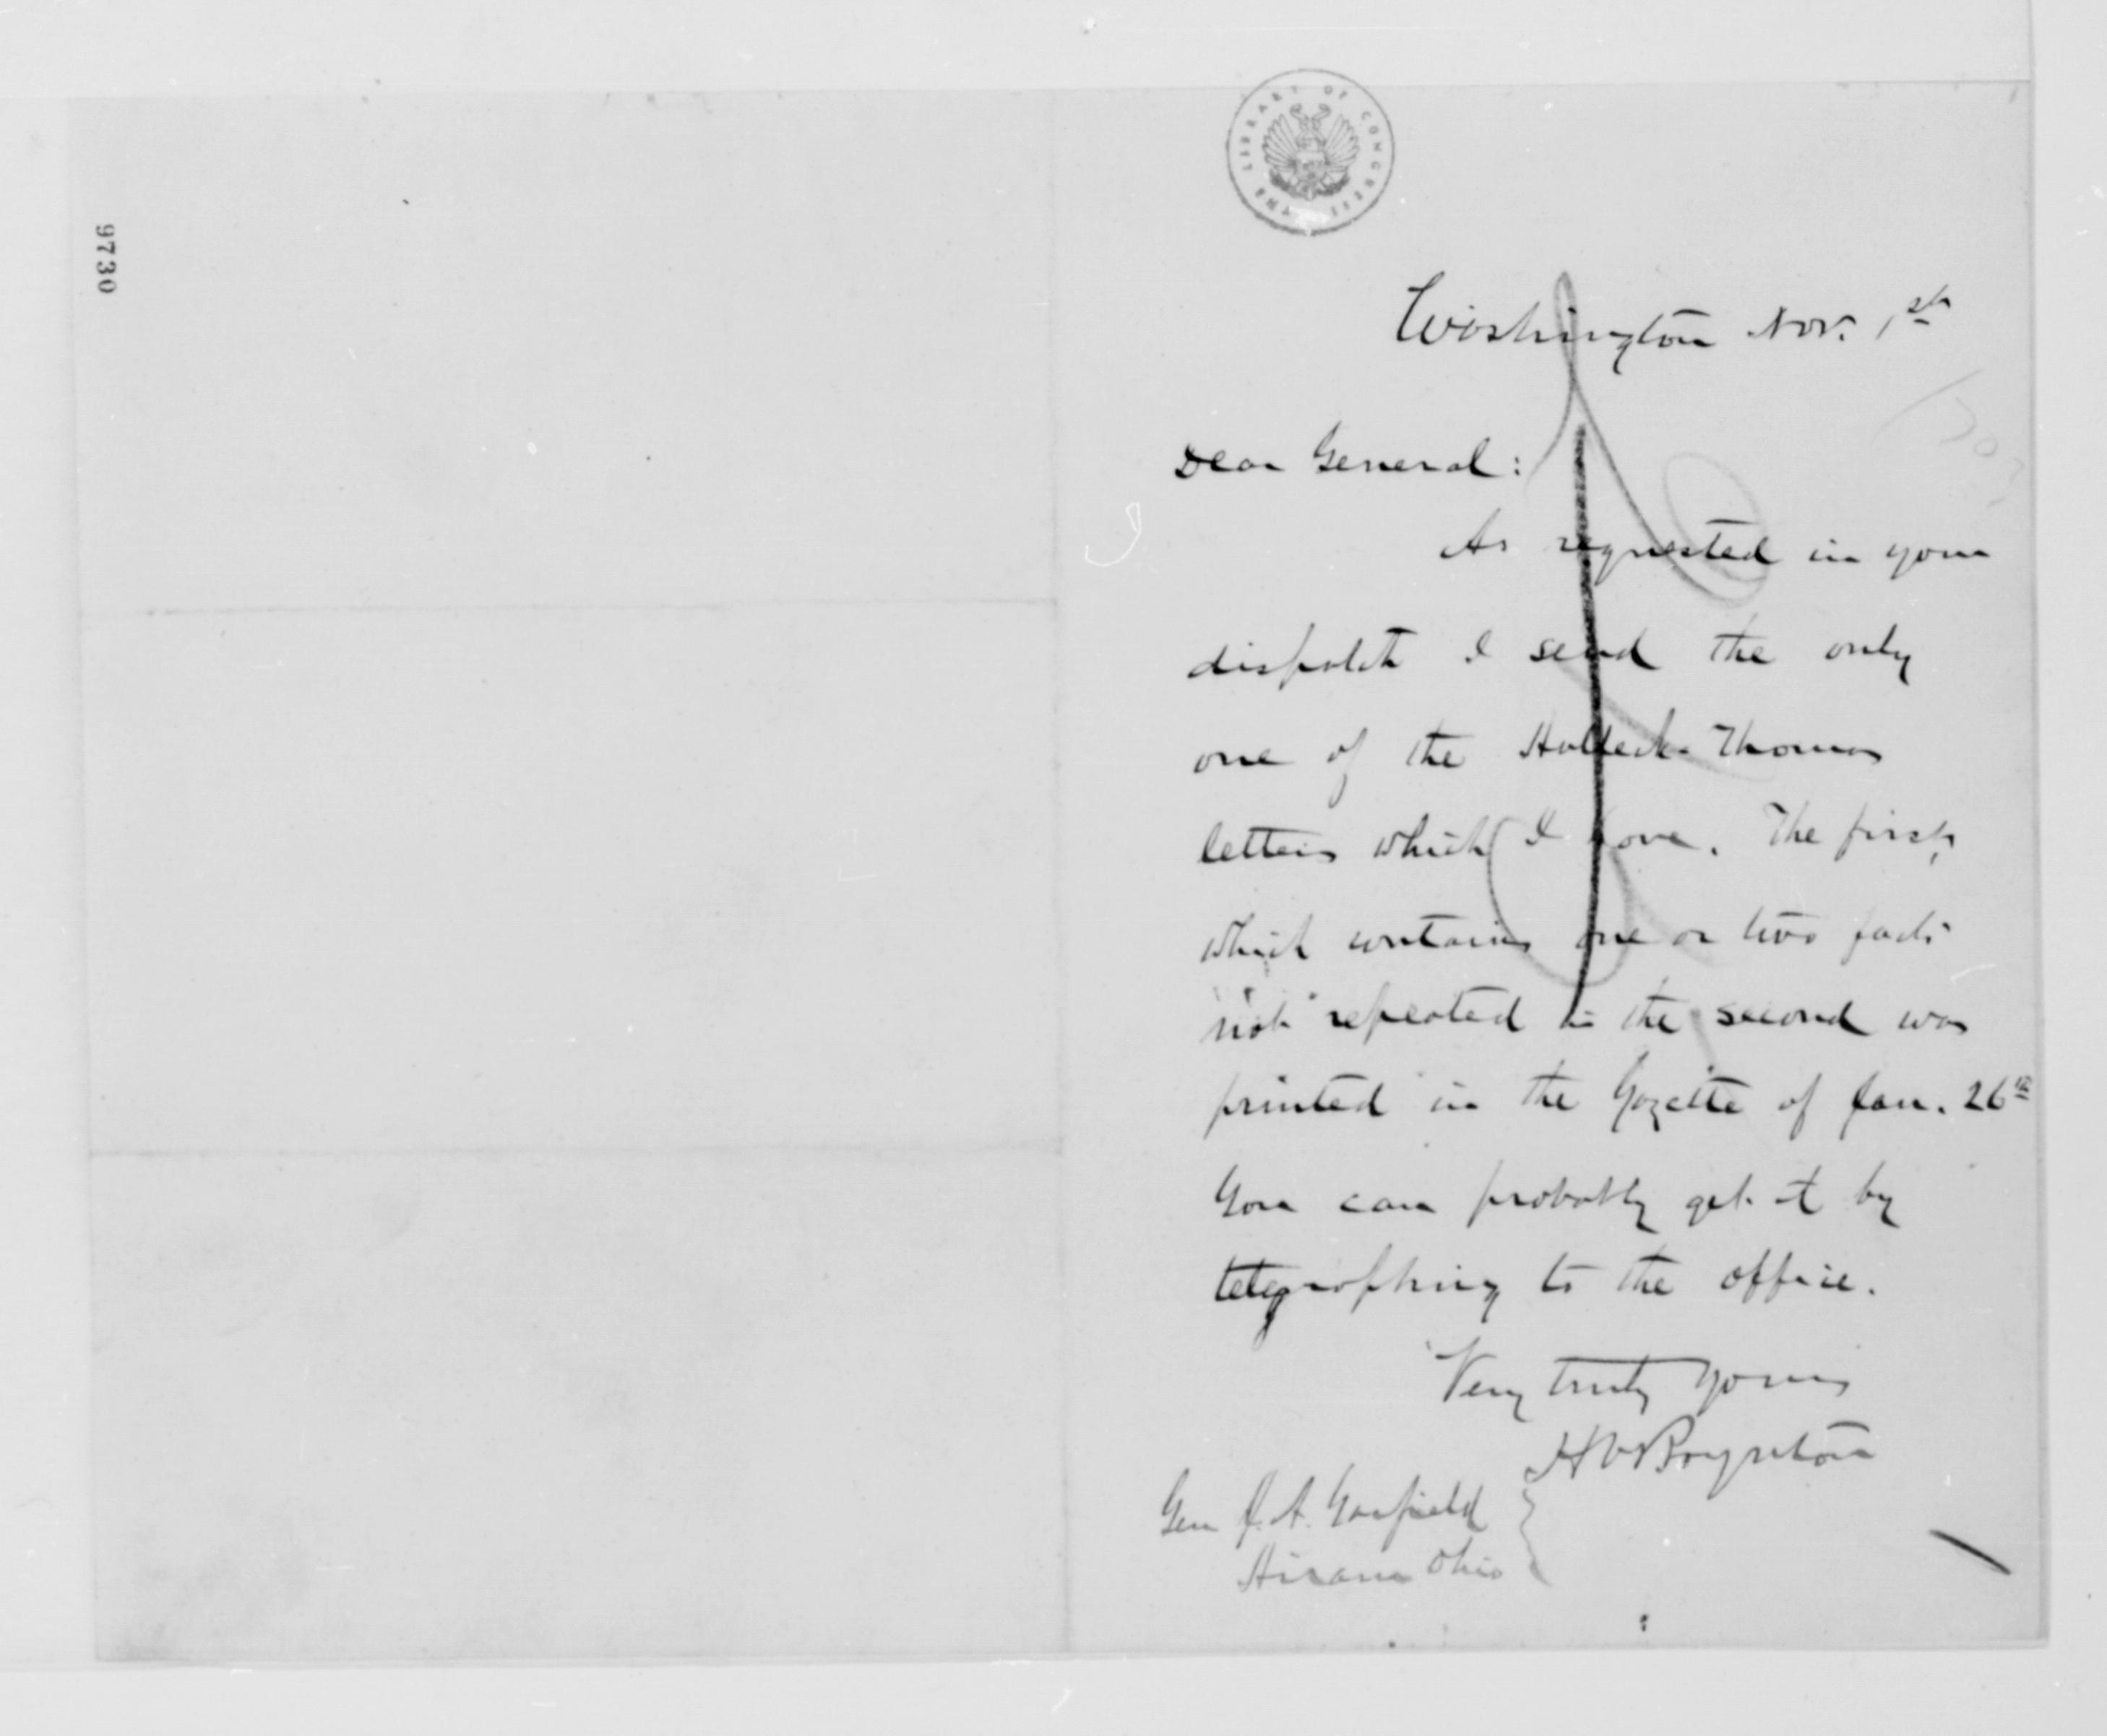 9730
THE LIBRARY OF CONGRESS
Washington Nov. 1st
Dear General:
As requested in your
dispatch I send the only
one of the Halleck-Thomas
letters which I have. The first,
which contains one or two facts
not repeated in the second was
printed in the Gazette of Jan. 26th
You can probably get it by
telegraphing to the office.
Very truly yours
H V Boynton
Gen J. A. Garfield
Hiram Ohio